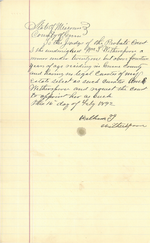 State of Missouri }
County of Greene
To the Judge of the Probate Court
I the undersigned Wm F Witherspoon a
minor under twenty one but over fourteen
years of age residing in Greene County
and having no legal Curator of my
estate select as such Curator
Witherspoon and request the Court
to appoint her as such
This 16 day of July 1892
William F
Witherspoon